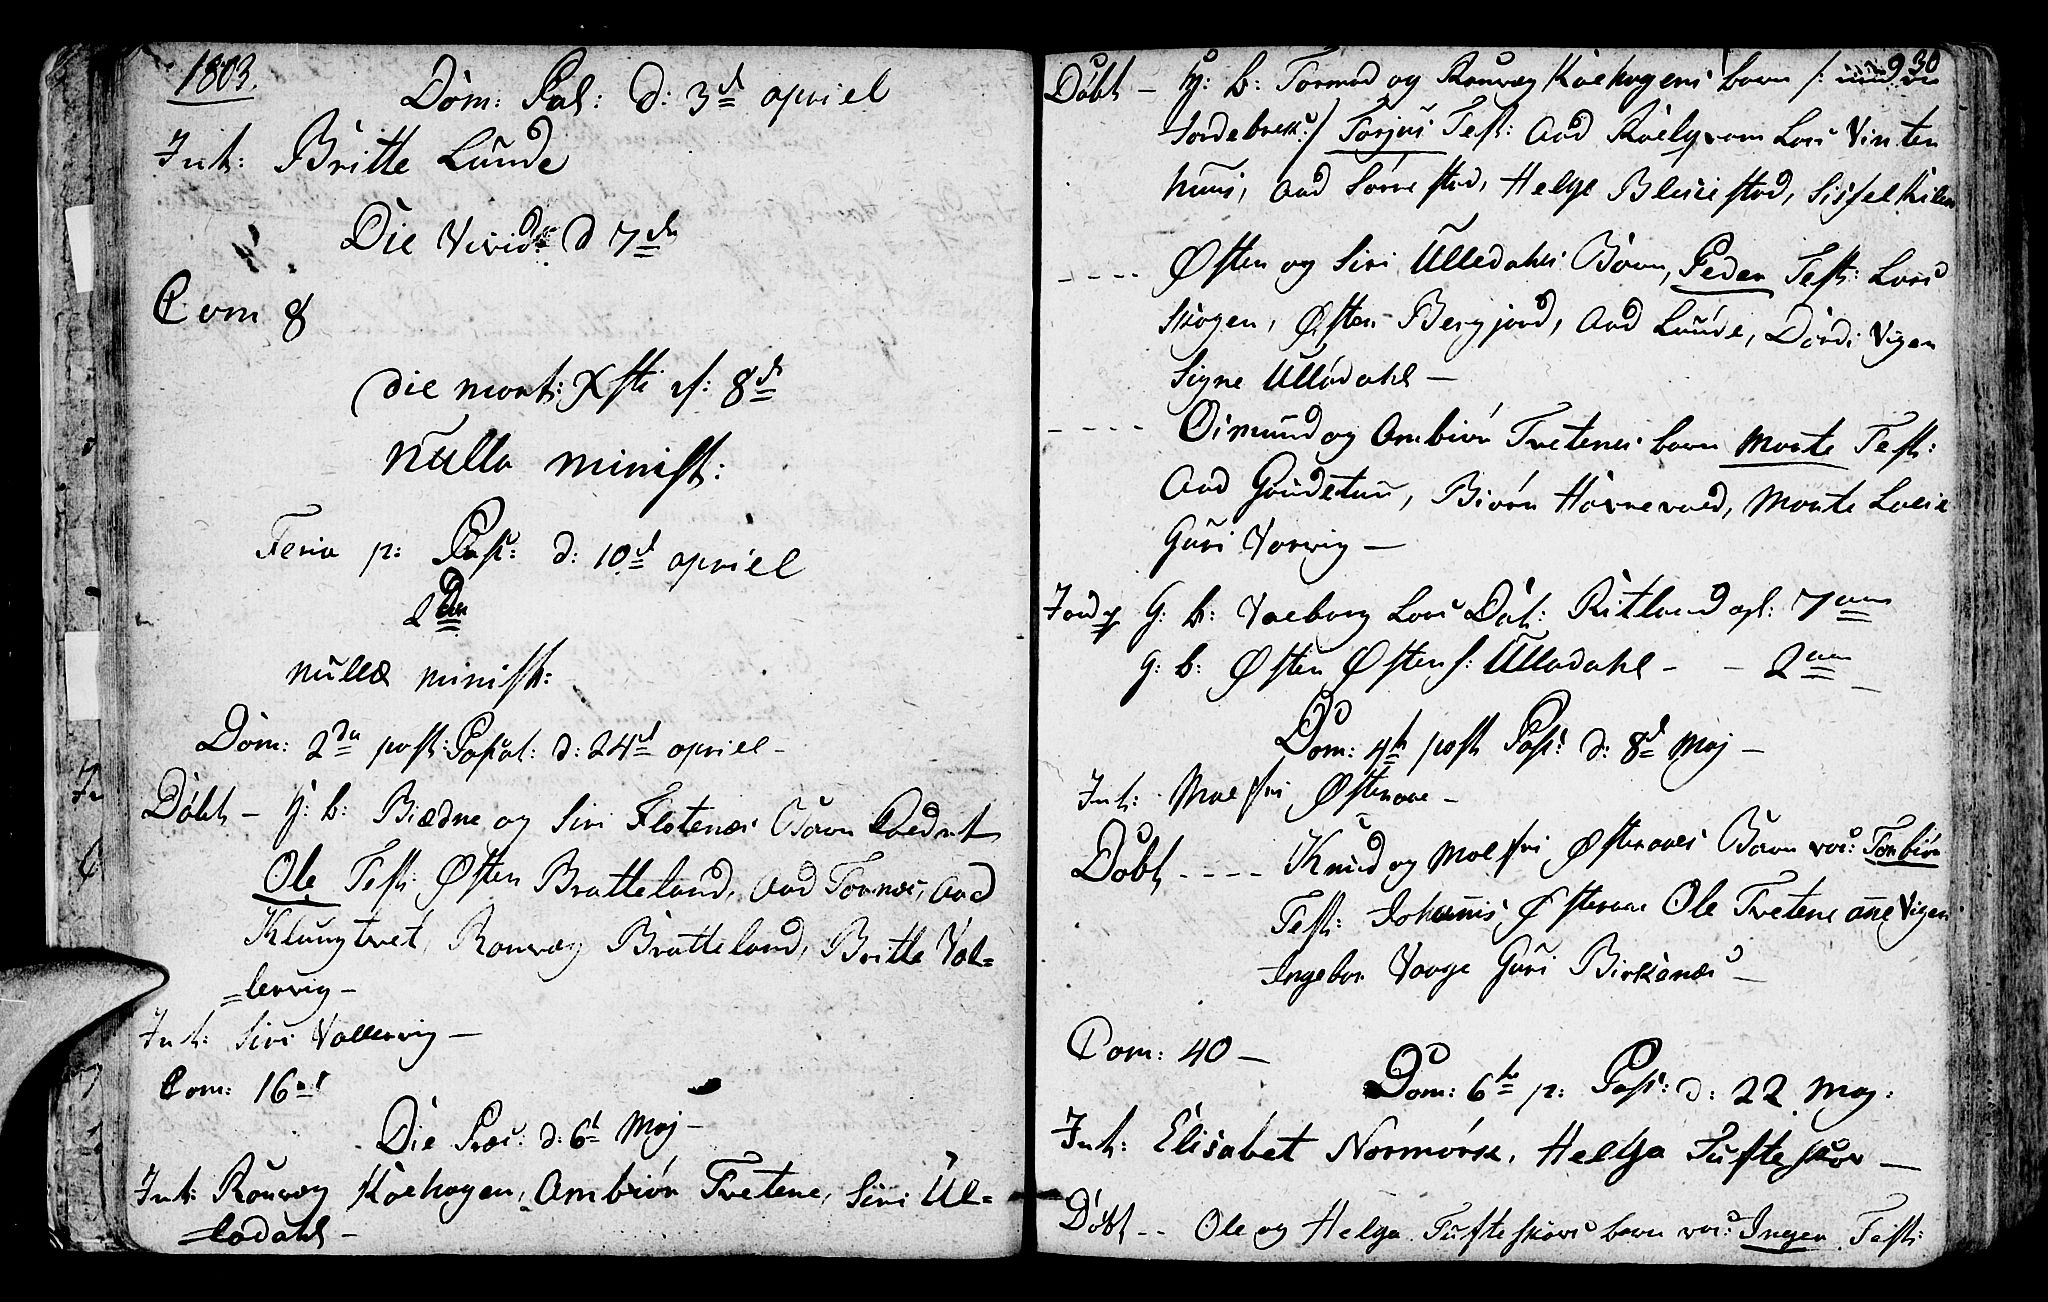 1803.
Dom: Pal: d: 3d apriel
Int: Britte Lunde
Die Virid: d 7de
Com 8
die mort: Xsti d: 8d
nulla minist:
Feria p: Pas: d: 10d apriel
2da
nullæ minist:
Dom: 2da post: Pascat: d: 24d apriel -
Døbt - H: b: Biædne og Siri Flotenæs Barn
Ole Test: Østen Bratteland, Aad Tornæs, Aad
Klungtvet, Ronvæg Bratteland, Britte Val=
=lervig -
Int: Siri Vallervig -
Com: 16
Die Præc: d: 6t Maj -
Int: Ronvæg Kaehagen, Ambiør Tvetene, Siri Ul=
=ladahl -
30
Døbt - H: b: Tormod og Ronvæg Kaehagens barn /:
Jordebrek:/ Torjus Test: Aad Lars Vinten
huus, Aad Sørrestad, Helge Bleiestad, Sissel Kilen
---- Østen og Siri Ulledahls Barn, Peder Test: Lars
Skogen, Østen Bergjord, Aad Lunde, Dordi Vigen
Signe Ulladahl -
---- Oimund og Ambiør Tvetenes barn Marte Test:
Aad Goudetun, Biørn Havrevold, Marte
Guri Varvig -
Jord: G: b: Valborg Lars Dat: Ritland gl: 7 aar
G: b: Østen Østens: Ulladahl - - 2 aar -
Dom: 4t post Pas: d: 8d Maj -
Int: Malfri Østeraae -
Døbt ---- Knud og Malfri Østeraaes Barn var: Torbiør
Test: Johannis Østeraae Ole Tvetene ane Vigen
Ingebor Vaage Guri Birkenæs -
Com: 40 -
Dom: 6te p: Pas: d: 22 Maj:
Int: Elisabet Normørk, Helga Tufteskov -
Døbt -- Ole og Helga Tufteskovs barn var: Inger Test: